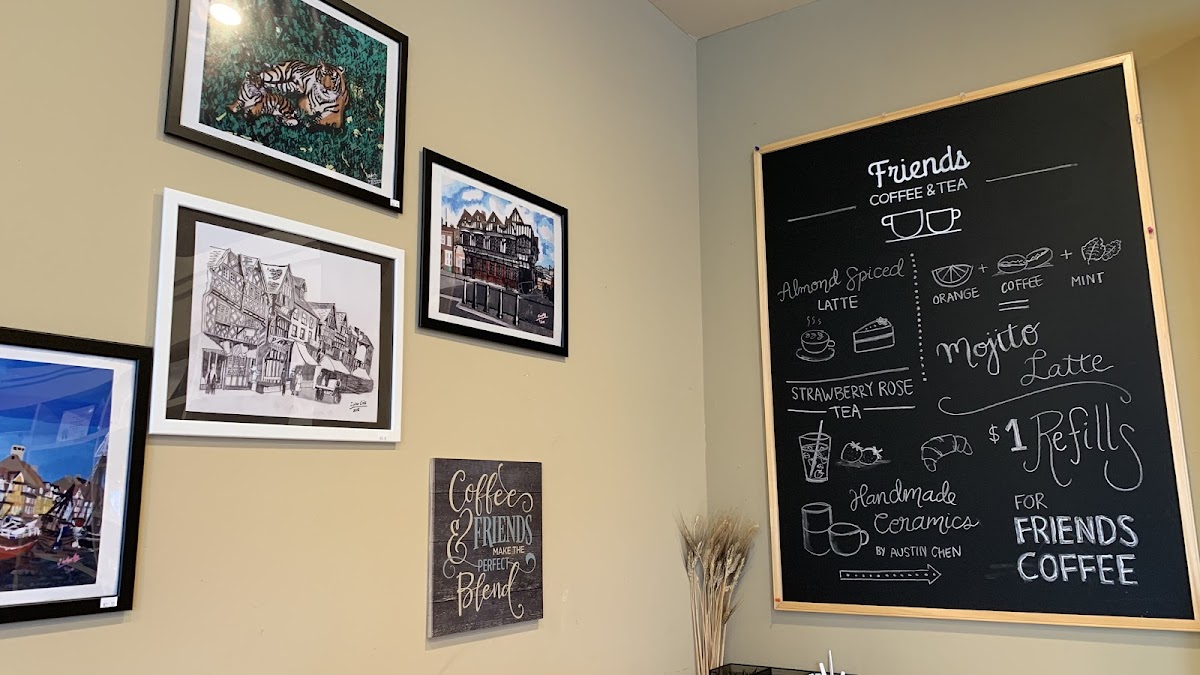 Coffee
& FRIENDS
MAKE THE
PERFECT
Blend
Friends
COFFEE & TEA
Almond Spiced
LATTE
STRAWBERRY ROSE
TEA
Handmade
Ceramics
BY AUSTIN CHEN
ORANGE + COFFEE + MINT
Mojito
Latte
$1 Refills
FOR
FRIENDS
COFFEE